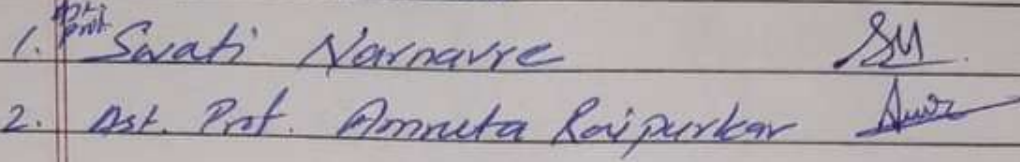 1. Ast. Prof. Swati Narnavre
2. Ast. Prof. Amruta Raipurkar